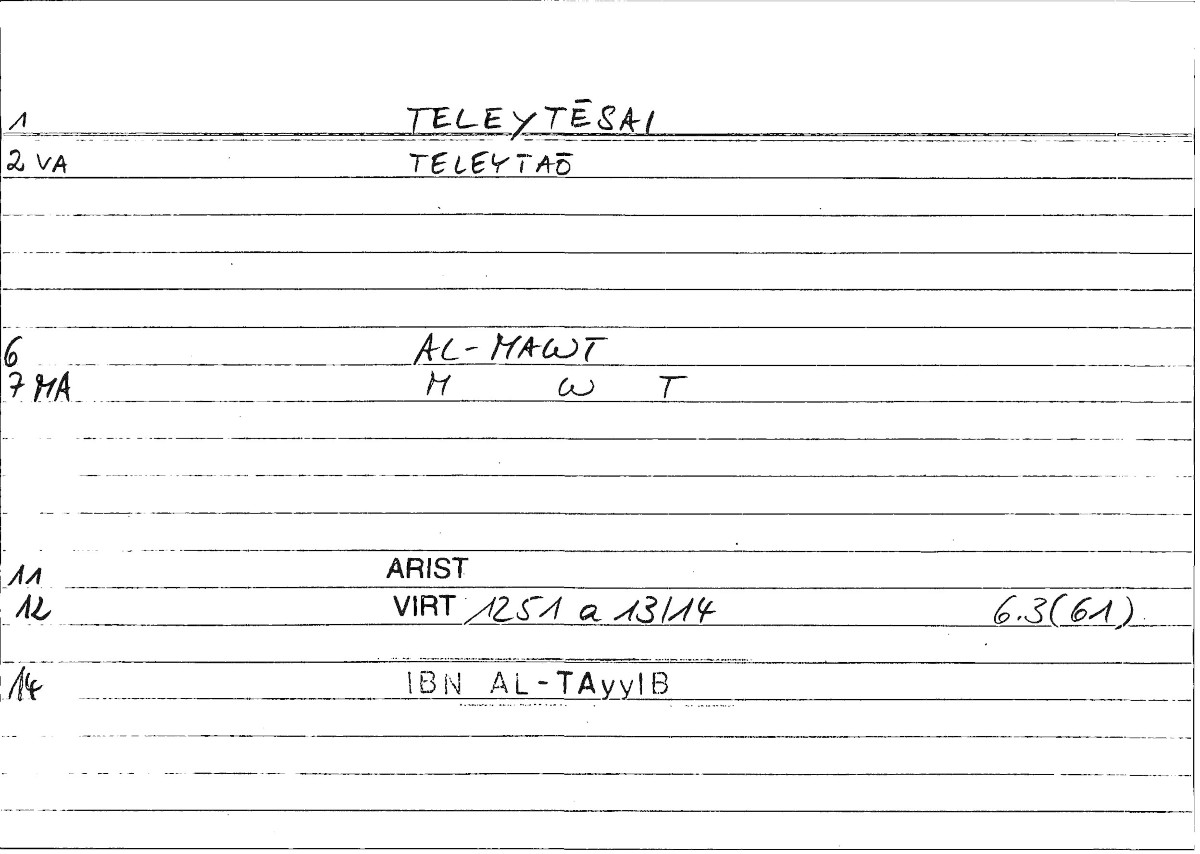 1 TELEYTĒSAI
2 VA TELEYTAŌ
6 AL-MAWT
7 MA M W T
11 ARIST
12 VIRT 1251 a 13/14 6.3(61)
14 IBN AL-TAyyIB